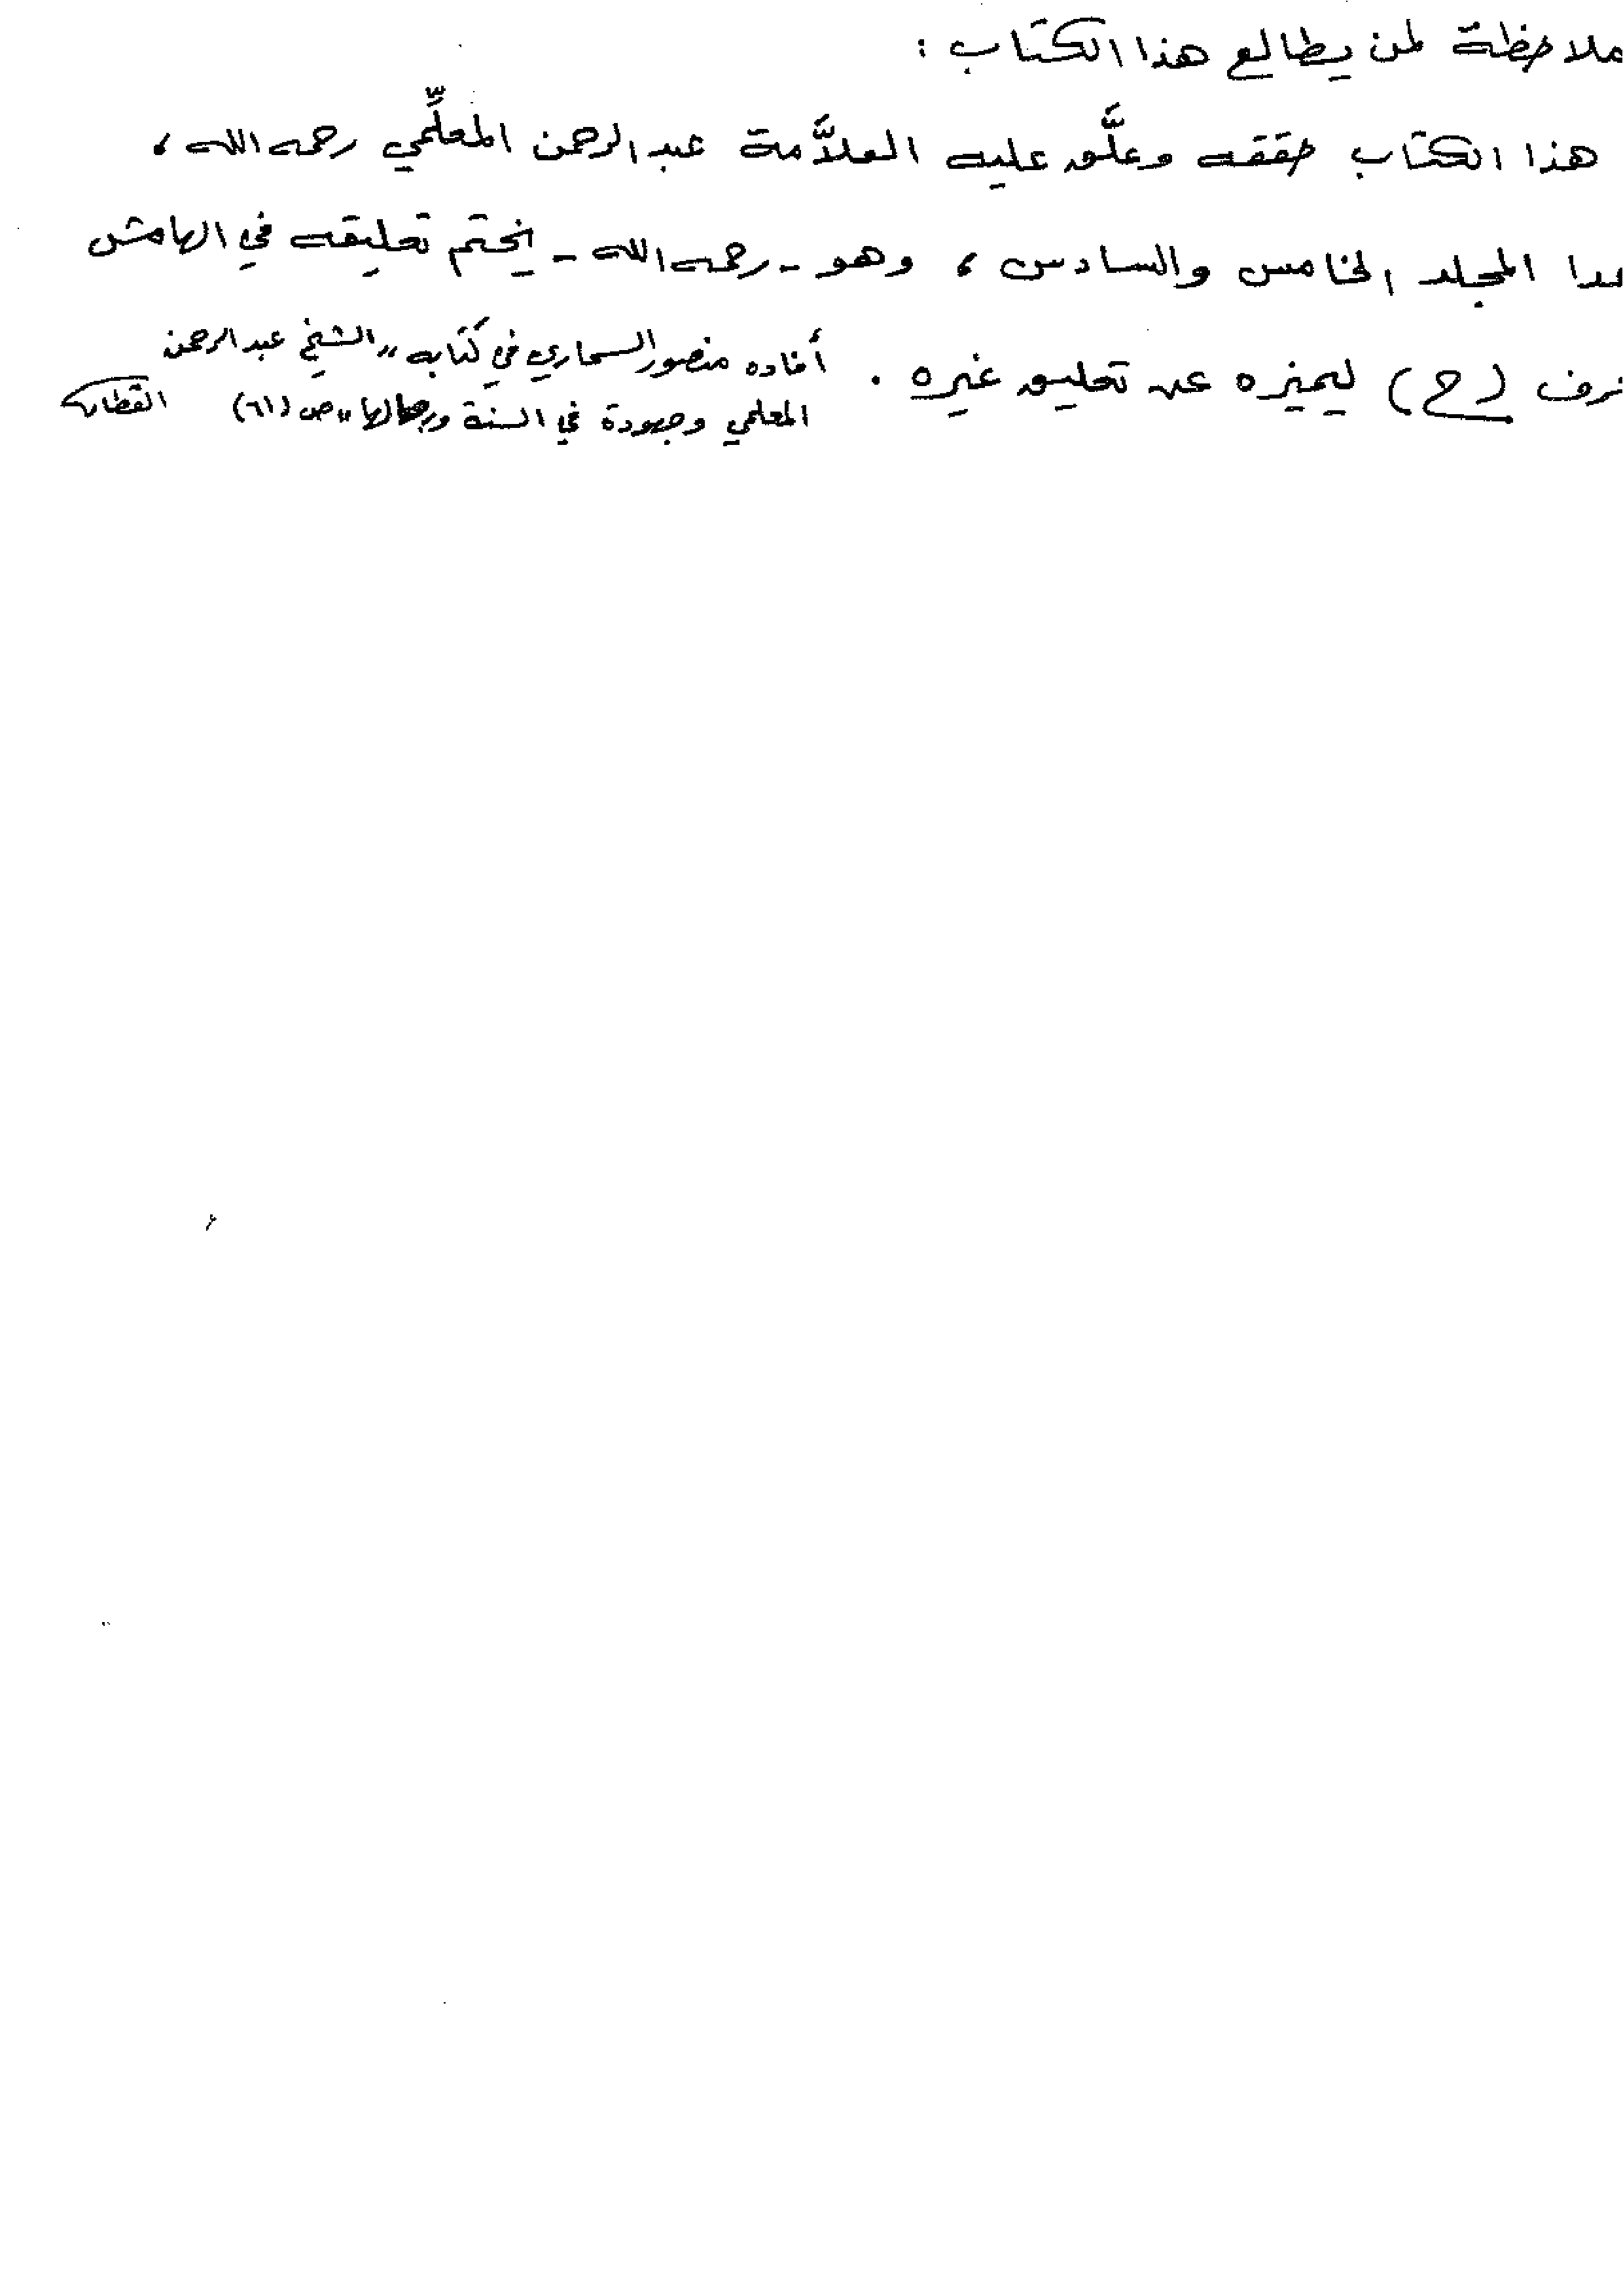 ملاحظة لمن يطالع هذا الكتاب :
هذا الكتاب حققه وعلَّق عليه العلاَّمة عبدالرحمن المعلِّمي رحمه الله ،
عدا المجلد الخامس والسادس ، وهو - رحمه الله - يختم تعليقه في الهامش
بحرف (ح) ليميزه عن تعليق غيره .
أفاده منصور السماري في كتابه „ الشيخ عبدالرحمن
المعلمي وجهودة في السنة ورجالها „ ص (٦١)